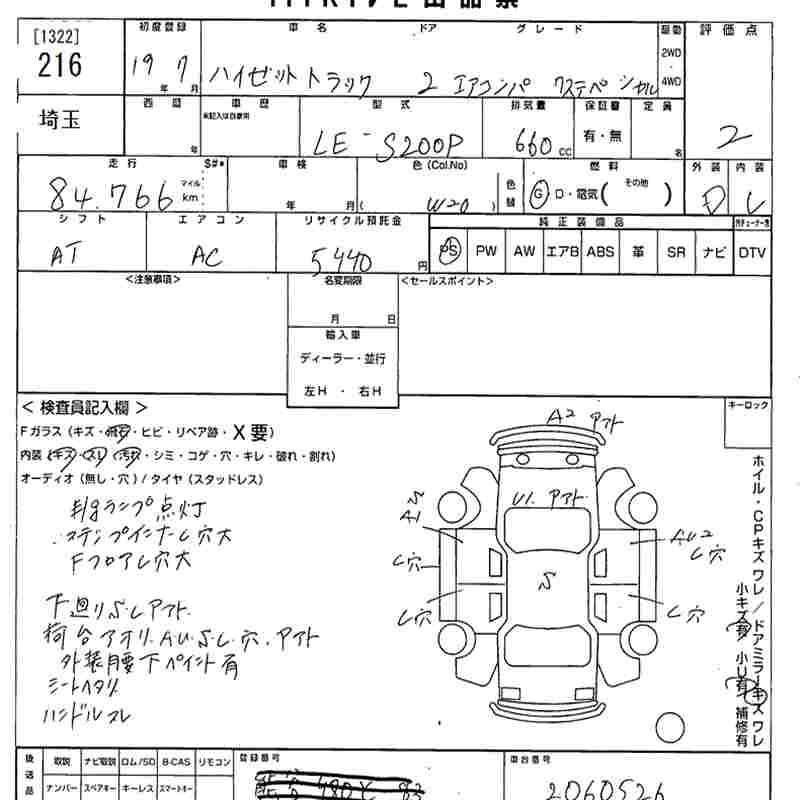 [1322]
216
埼玉
初度登録 車名 ドア グレード 駆動 評価点
19年 7月 ハイゼットトラック 2 エアコンパワステスペシャル 2WD・4WD
西暦 車歴 型式 排気量 保証書 定員 2
年 未記入は自家用 LE-S200P 660cc 有・無 名
走行 $#* 車検 色(Col.No) 燃料 外装 内装
84.766 マイル km 年 月( W20 ) 色替 G D・電気( その他 ) D
シフト エアコン リサイクル預託金 純正装備品
AT AC 5440円 PS PW AW エアB ABS 革 SR ナビ DTV
<注意事項> 名変期限 <セールスポイント>
月 日
輸入車
ディーラー・並行
左H ・ 右H
<検査員記入欄> キーロック
Fガラス(キズ・飛石・ヒビ・リペア跡・X要)
内装(キズ・スレ・汚れ・シミ・コゲ・穴・キレ・破れ・割れ)
オーディオ(無し・穴)/タイヤ(スタッドレス)
ランプ点灯
ステップインナーL穴大
FフロアL穴大
下廻りS.Lアフト
荷台アオリ.AU.S.L.穴.アフト
外装腰下ペイント有
シートヘタリ
ハンドルスレ
A2 アフト
U1.アフト
A1 S
AU2
L穴
L穴
S
L穴
L穴
ホイル・CPキズワレ/ドアミラーキズワレ
小キズ有 小U有 補修有
後送品 取説 ナビ取説 ロム/SD B-CAS リモコン 登録番号 車台番号
ナンバー スペアキー キーレス スマートキー 2060526